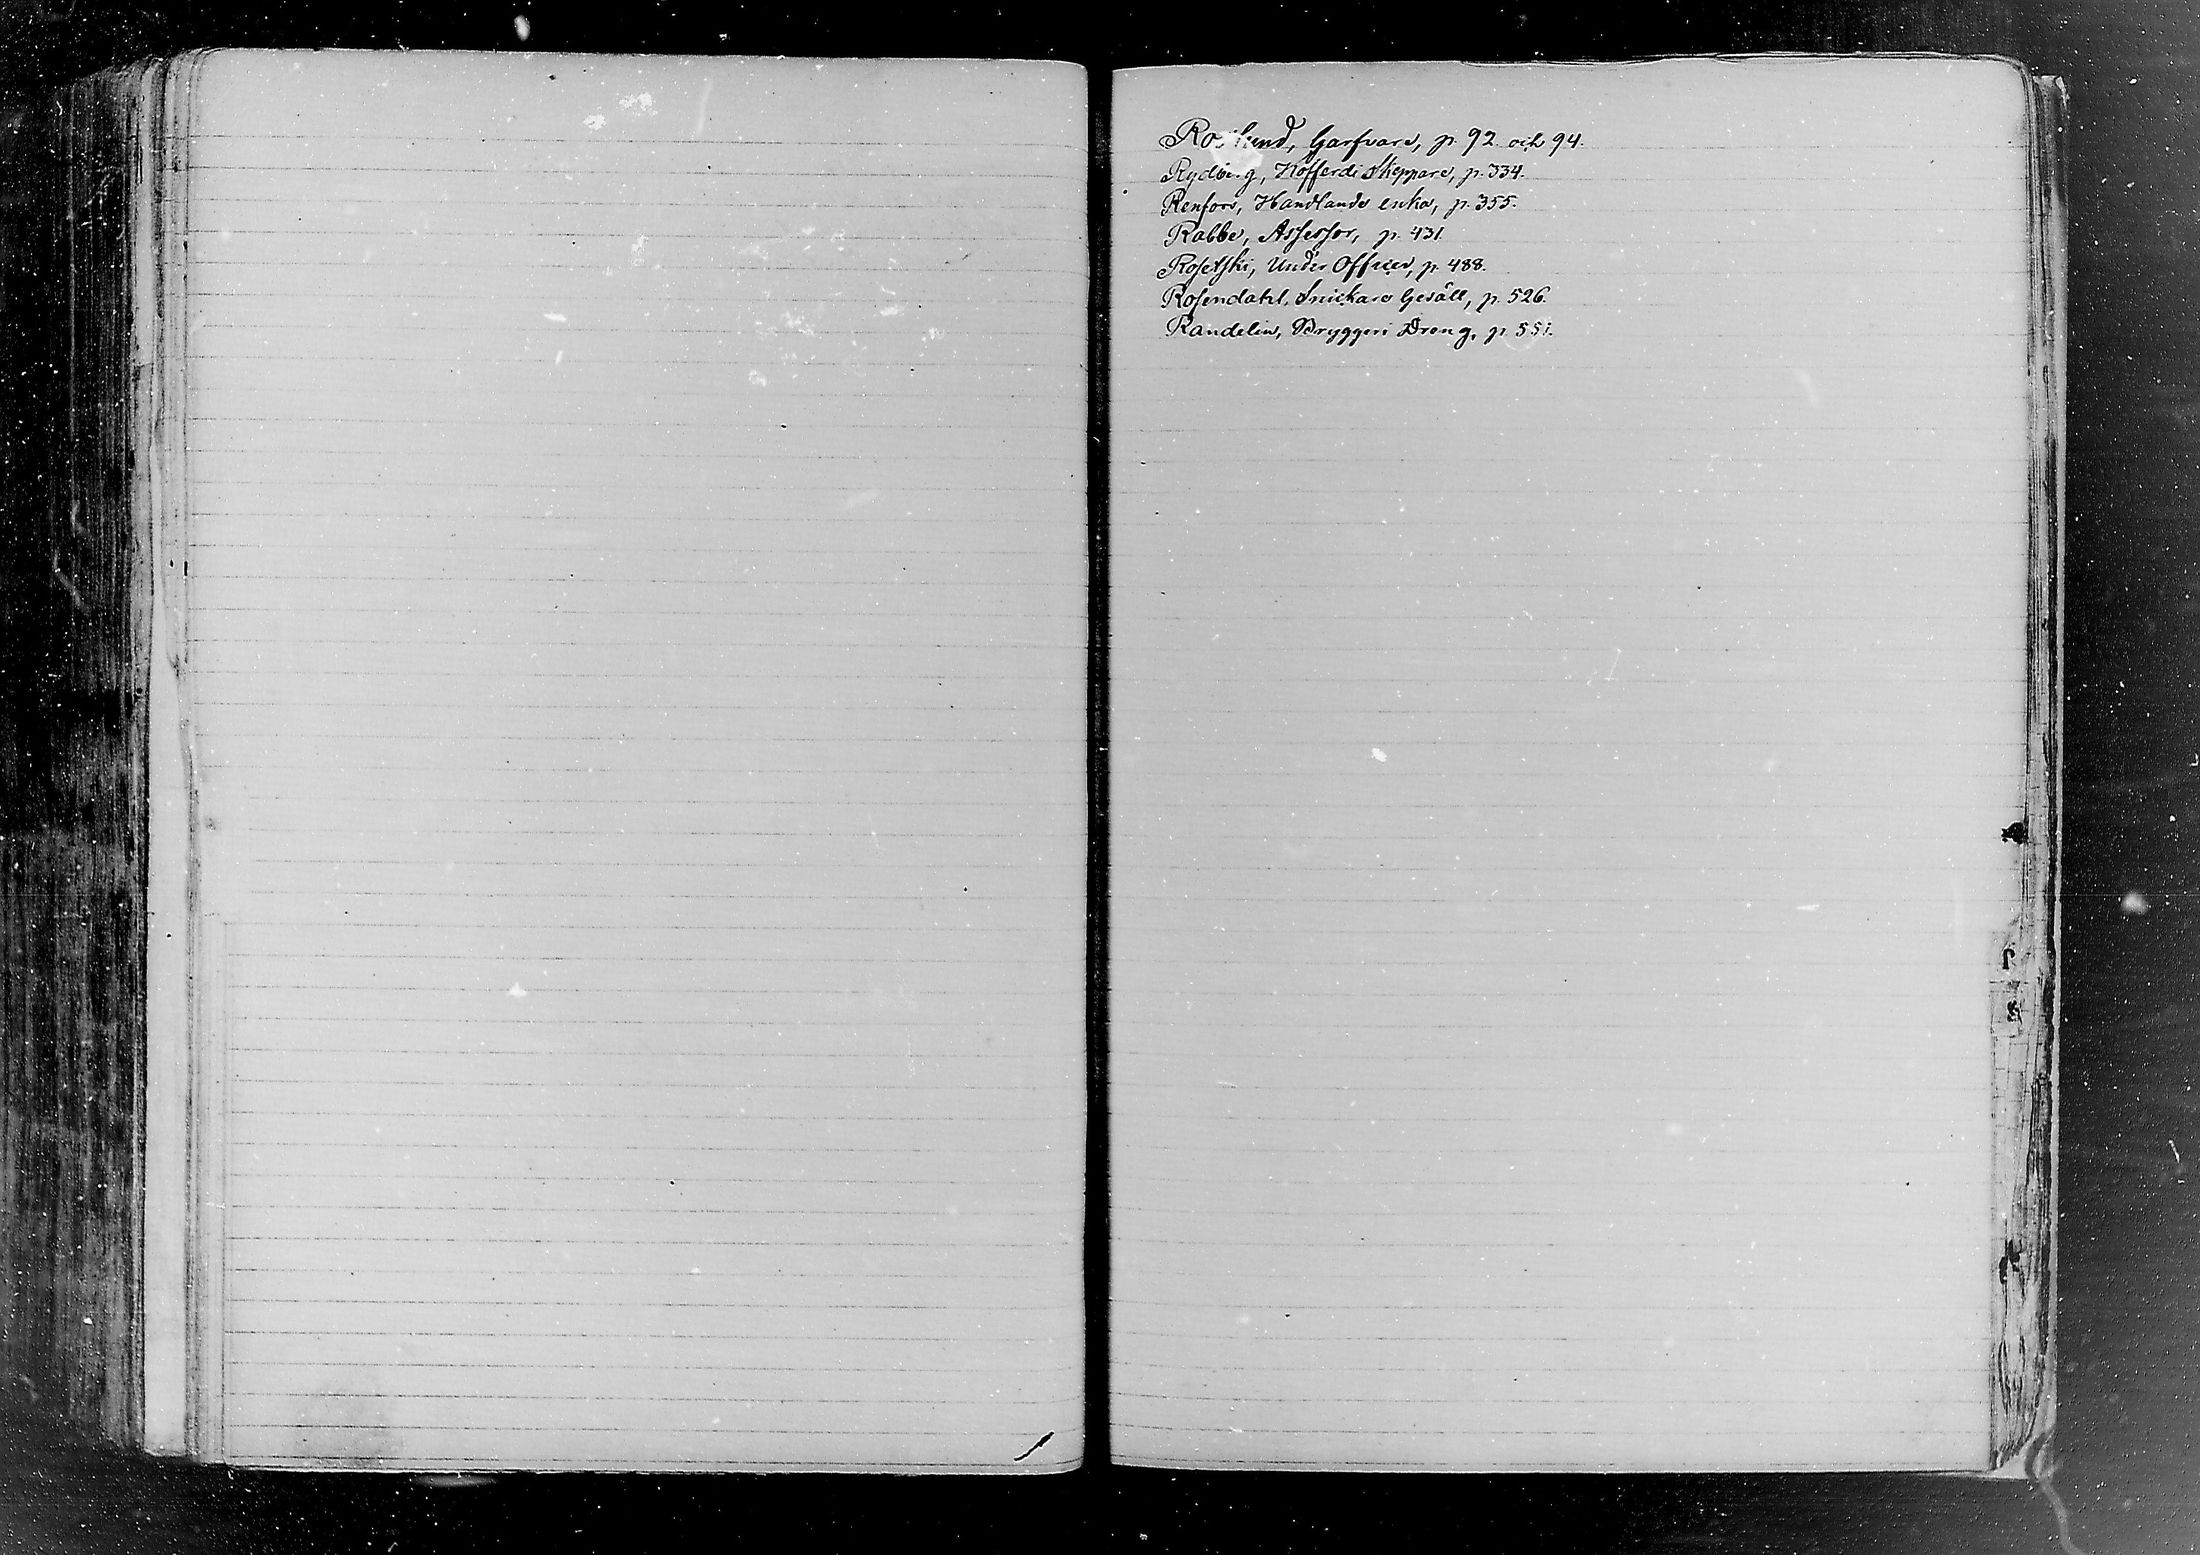 Roslund, Garfvare, p. 92 och 94.
Rydberg, Kofferdi Skeppare, p. 334.
Renfors, Handlande enka, p. 355.
Rabbe, Assessor, p. 431
Rosetski, Under Officer, p. 488.
Rosendahl, Snickare Gesäll, p. 526.
Randelin, Bryggeri Dreng, p. 551.